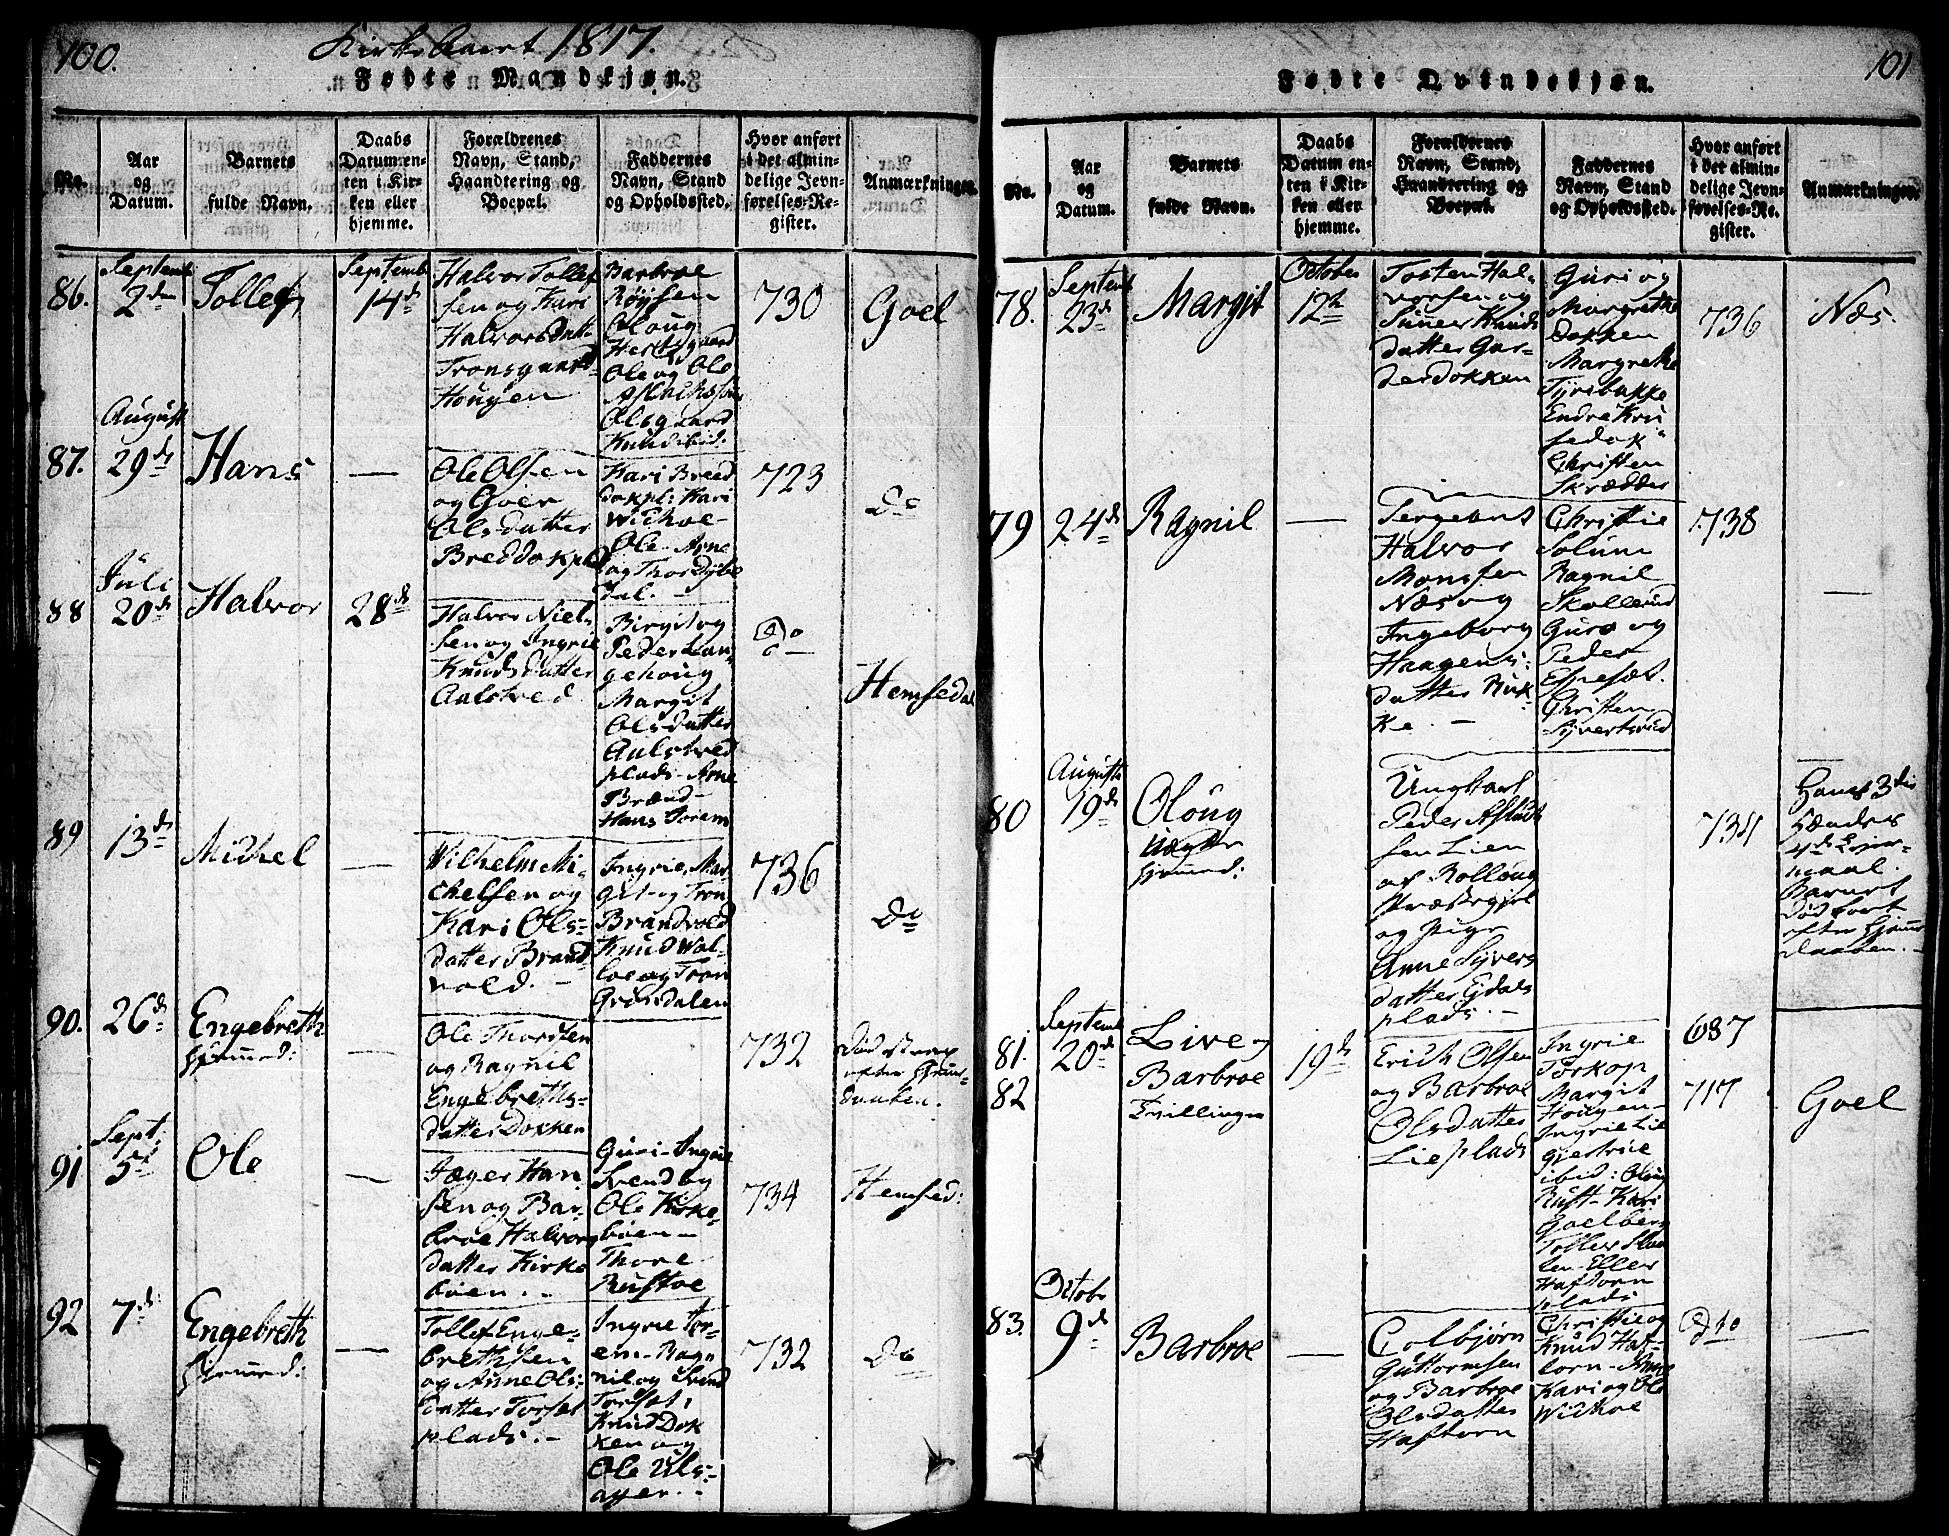 100.
Kirke Aaret 1817.
Fødte Mandkjøn.
No.
Aar
og
Datum.
Barnets
fulde Navn.
Daabs
Datum en-
ten i Kir-
ken eller
hjemme.
Forældrenes
Navn, Stand,
Haandtering og
Boepæl.
Faddernes
Navn, Stand
og Opholdssted.
Hvor anført
i det almin-
delige Jevn-
førelses-Re-
gister.
Anmærkninger.
86.
Septemb
2den
Tollef
Septemb
14d
Halvor Tollef
sen og Kari
Halvorsdatt
Tronsgaard-
Hougen
Barbroe
Røjsen
Oloug
Hertsgaard
Ole og Ole
Aslachssøn
Olsgaard
Knud ibid.
730
Goel
87.
August
29ds
Hans
—
Ole Olsen
og Goer
Olsdatter
Breddokpl
Kari Breed
dokpl: Kari
Wichoe-
Ole- Arne
og Thor Dybe
dal. -
723
Do
88
Juli
20ds
Halvor
28ds
Halvor Niel-
sen og Ingrie
Knudsdatter
Aalstved
Birgit og
Peder Lan-
gehoug
Margit
Olsdatter
Aalstved
plads- Arne
Brænd-
Hans Torem
do
Hemsedal
89
13ds
Michel
—
Wilhelm Mi-
chelsen og
Kari Ols-
datter Brand
vold. -
Ingrie, Mar
git og Tron
Brandvold
Knud Wal-
loe og Tron
Grøndalen
736
Do
90.
26ds
Engebreth
hjemmed:
—
Ole Thordsen
og Ragnil
Engebreths-
datter Dokken
732
død strax
efter Hjem-
daaben.
91
Sept:
5t
Ole
—
Jæger Han
sen og Bar-
broe Halvors
datter Kirke
bøen. -
Guri- Ingrie
Svendby
Ole Kirke-
bøen-
Thore
Rustoe
734
Hemsed:
92
7d:
Engebreth
hjemmed:
—
Tollef Enge-
brethsen
og Anne Ols-
datter Torset
plads. -
Ingrie Tor-
em- Rag
nil og Svend
Torset,
Knud Dok
ken og
Ole Uls-
ager. -
732
Do
101
Fødte Qvindekjøn.
No.
Aar
og
Datum.
Barnets
fulde Navn.
Daabs
Datum en-
ten i Kir-
ken eller
hjemme.
Forældrenes
Navn, Stand,
Haandtering og
Boepæl.
Faddernes
Navn, Stand
og Opholdssted.
Hvor anført
i det almin-
delige Jevn-
førelses-Re-
gister.
Anmærkninger.
78.
Septemb
23ds
Margit
October
12te
Tosten Hal-
vorsen og
Siner Knuds
datter Gar-
derdokken
Guri og
Margrethe
Dokken
Margrethe
Tyribakke
Endre Kru
sedok
Christen
Skrædder
736
Næs.
79
24ds
Ragnil
—
Sergeant
Halvor
Monsen
Næs og
Ingeborg
Haagens-
datter Ruk-
ke. -
Christie
Solum
Ragnil
Skollerud
Guro og
Peder
Espeset.
Christen
Syvertsrud
738
—
80
Augusti
19ds
Oloug
Uægte
hjemmed:
Ungkarl
Peder Aslach
sen Lien
af Rolloug
Præstegjel
og Pige
Anne Syvers
datter Ejdals
plads. -
734
Hans 3die
Hendes
4de Leier-
maal.
Barnet
død kort
efter Hjemme
daaben. -
81.
82
Septemb
20ds
Live og
Barbroe
Tvillinger
19ds
Erich Olsen
og Barbroe
Olsdatter
Lieplads
Ingrie
Torkop
Margit
Hougen-
Ingrie Lie
Giertrue
ibid: Oloug
Rust- Kari
Goelberg
Tollev Slaa
len- Eller
Haftorn
plads
687
717
Goel
83.
Octobr
9d
Barbroe
—
Colbjørn
Guttormsen
og Barbroe
Olsdatter
Haftorn
Christie og
Knud Haf-
torn- Anne
Kari og Ole
Wichoe
dto
—